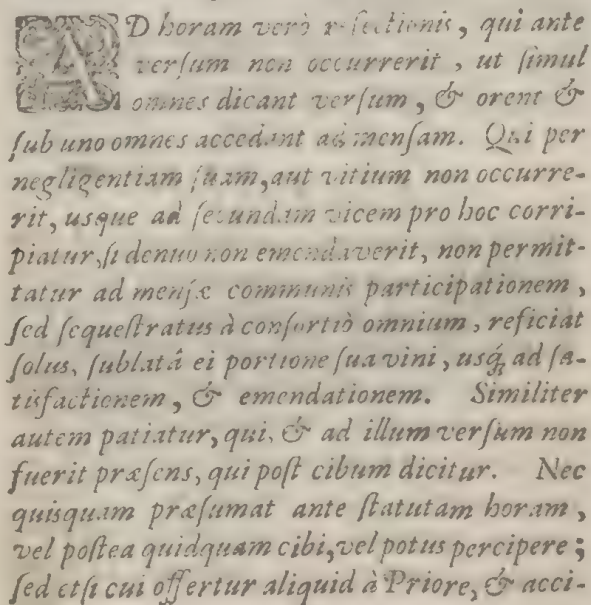 AD horam verò refectionis, qui ante
verſum non occurrerit, ut ſimul
omnes dicant verſum, & orent &
ſub uno omnes accedant ad menſam. Qui per
negligentiam ſuam, aut vitium non occurre-
rit, usque ad ſecundam vicem pro hoc corri-
piatur, ſi denuo non emendaverit, non permit-
tatur ad menſæ communis participationem,
ſed ſequeſtratus à conſortiò omnium, reficiat
ſolus, ſublatâ ei portione ſua vini, usq; ad ſa-
tisfactionem, & emendationem. Similiter
autem patiatur, qui, & ad illum verſum non
fuerit præſens, qui poſt cibum dicitur. Nec
quisquam præſumat ante ſtatutam horam,
vel poſtea quidquam cibi, vel potus percipere;
ſed etſi cui offertur aliquid à Priore, & acci-